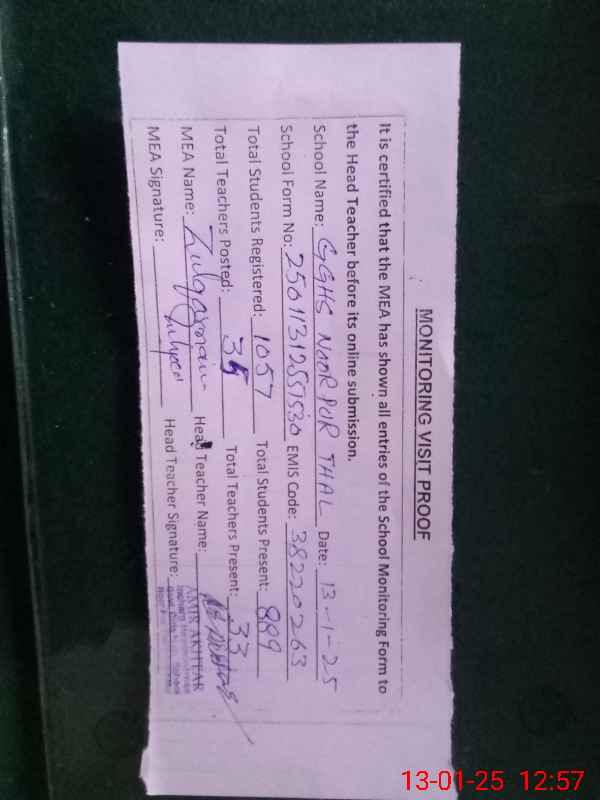 MONITORING VISIT PROOF
It is certified that the MEA has shown all entries of the School Monitoring Form to
the Head Teacher before its online submission.
School Name: GGHS NOOR PUR THAL Date: 13-1-25
School Form No: EMIS Code: 38220263
Total Students Registered: 1057 Total Students Present: 889
Total Teachers Posted: 35 Total Teachers Present: 33
MEA Name: Zulqarnain Head Teacher Name:
MEA Signature: Head Teacher Signature:
AMIR AKHTAR
13-01-25 12:57